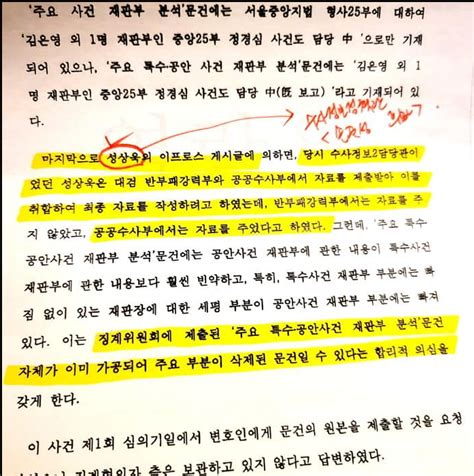 '주요 사건 재판부 분석'문건에는 서울중앙지법 형사25부에 대하여
'김은영 외 1명 재판부인 중앙25부 정경심 사건도 담당 中 '으로만 기재
되어 있으나, '주요 특수공안 사건 재판부 분석'문건에는 '김은영 외 1
명 재판부인 중앙25부 정경심 사건도 담당 中(旣 보고) '라고 기재되어 있
다.
마지막으로 성상욱의 이프로스 게시글에 의하면, 당시 수사정보2담당관이
었던 성상욱은 대검 반부패강력부와 공공수사부에서 자료를 제출받아 이를
취합하여 최종 자료를 작성하려고 하였는데, 반부패강력부에서는 자료를 주
지 않았고, 공공수사부에서는 자료를 주었다고 하였다. 그런데, '주요 특수
공안사건 재판부 분석'문건에는 공안사건 재판부에 관한 내용이 특수사건
재판부에 관한 내용보다 훨씬 빈약하고, 특히, 특수사건 재판부 부분에는 빠
짐 없이 있는 재판장에 대한 세평 부분이 공안사건 재판부 부분에는 빠져
있다. 이는 징계위원회에 제출된 '주요 특수공안사건 재판부 분석'문건
자체가 이미 가공되어 주요 부분이 삭제된 문건일 수 있다는 합리적 의심을
갖게 한다.
이 사건 제1회 심의기일에서 변호인에게 문건의 원본을 제출할 것을 요청
측은 보관하고 있지 않다고 답변하였다.